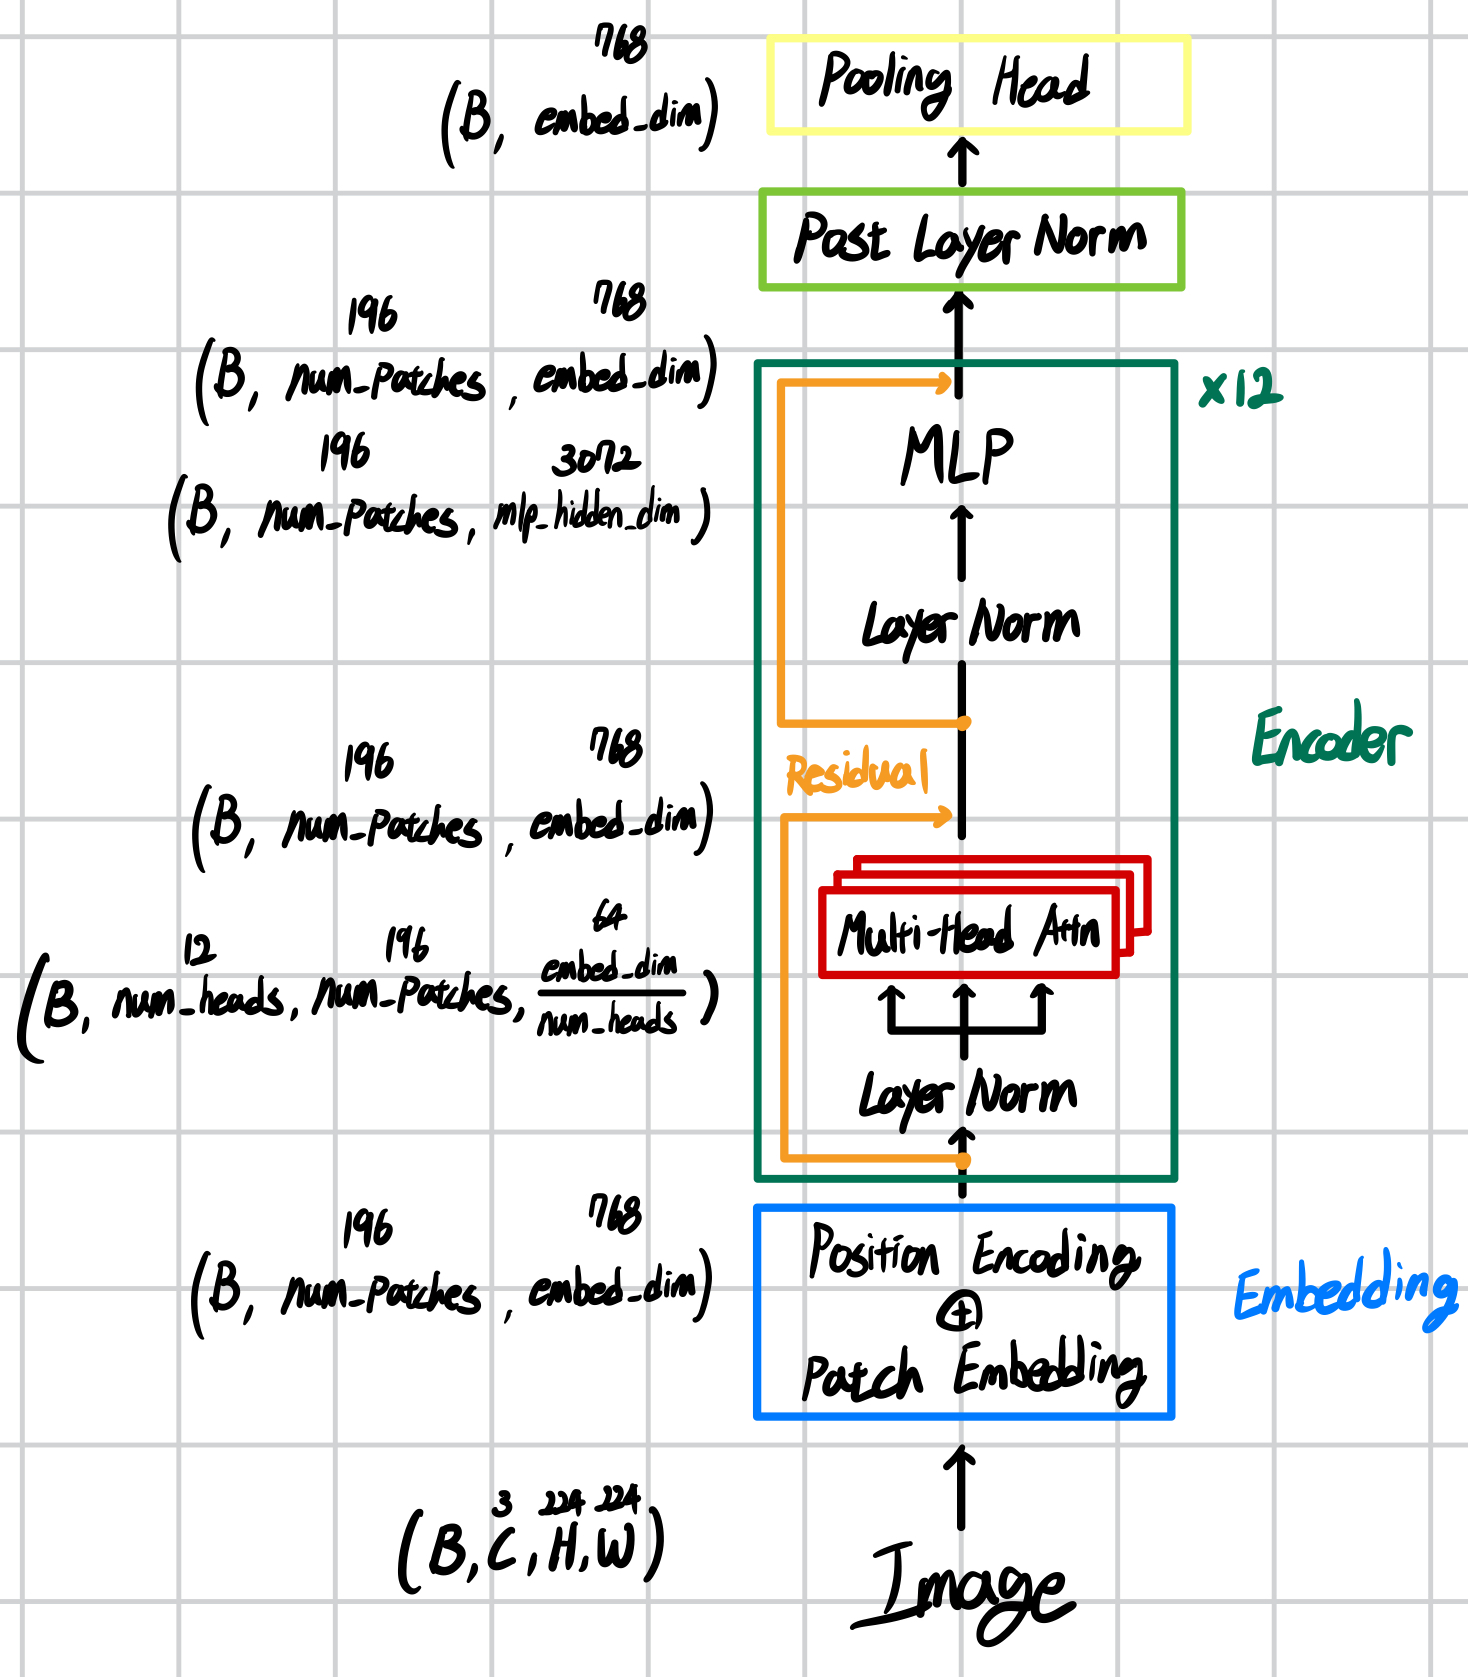 768
(B, embed_dim)
Pooling Head
Post Layer Norm
196 768
(B, num_Patches, embed_dim)
x12
196 3072
(B, num_Patches, mlp_hidden_dim)
MLP
Layer Norm
Encoder
Residual
196 768
(B, num_Patches, embed_dim)
Multi-Head Attn
12 196 64
(B, num_heads, num_Patches, embed_dim
num_heads)
Layer Norm
196 768
(B, num_Patches, embed_dim)
Position Encoding
+
Patch Embedding
Embedding
3 224 224
(B, C, H, W)
Image